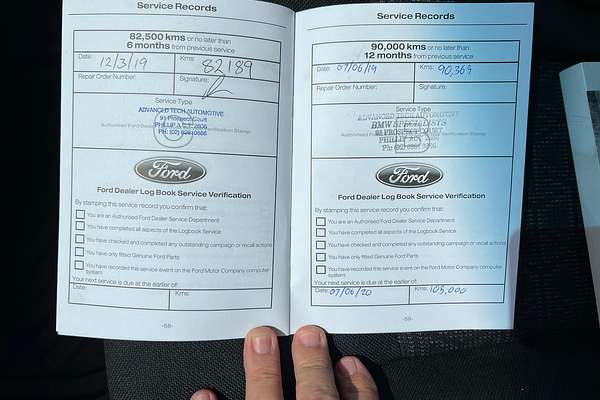 Service Records
82,500 kms or no later than
6 months from previous service
Date: 12/3/19 Kms: 82189
Repair Order Number: Signature:
Service Type
ADVANCED TECH AUTOMOTIVE
91 Prospect Court
PHILLIP A.C.T. 2606
PH: (02)
Authorised Ford Verification Stamp
Ford
Ford Dealer Log Book Service Verification
By stamping this service record you confirm that:
You are an Authorised Ford Dealer Service Department
You have completed all aspects of the Logbook Service
You have checked and completed any outstanding campaign or recall actions
You have only fitted Genuine Ford Parts
You have recorded this service event on the Ford Motor Company computer
system
Your next service is due at the earlier of:
Date: Kms:
-58-
Service Records
90,000 kms or no later than
12 months from previous service
Date: 07/06/19 Kms: 90,369
Repair Order Number: Signature:
Service Type
ADVANCED TECH AUTOMOTIVE
BMW SPECIALISTS
PROSPECT COURT
PHILLIP
Ph: (02)
Authorised Ford Verification Stamp
Ford
Ford Dealer Log Book Service Verification
By stamping this service record you confirm that:
You are an Authorised Ford Dealer Service Department
You have completed all aspects of the Logbook Service
You have checked and completed any outstanding campaign or recall actions
You have only fitted Genuine Ford Parts
You have recorded this service event on the Ford Motor Company computer
system
Your next service is due at the earlier of:
Date: 07/06/20 Kms: 105,000
-59-